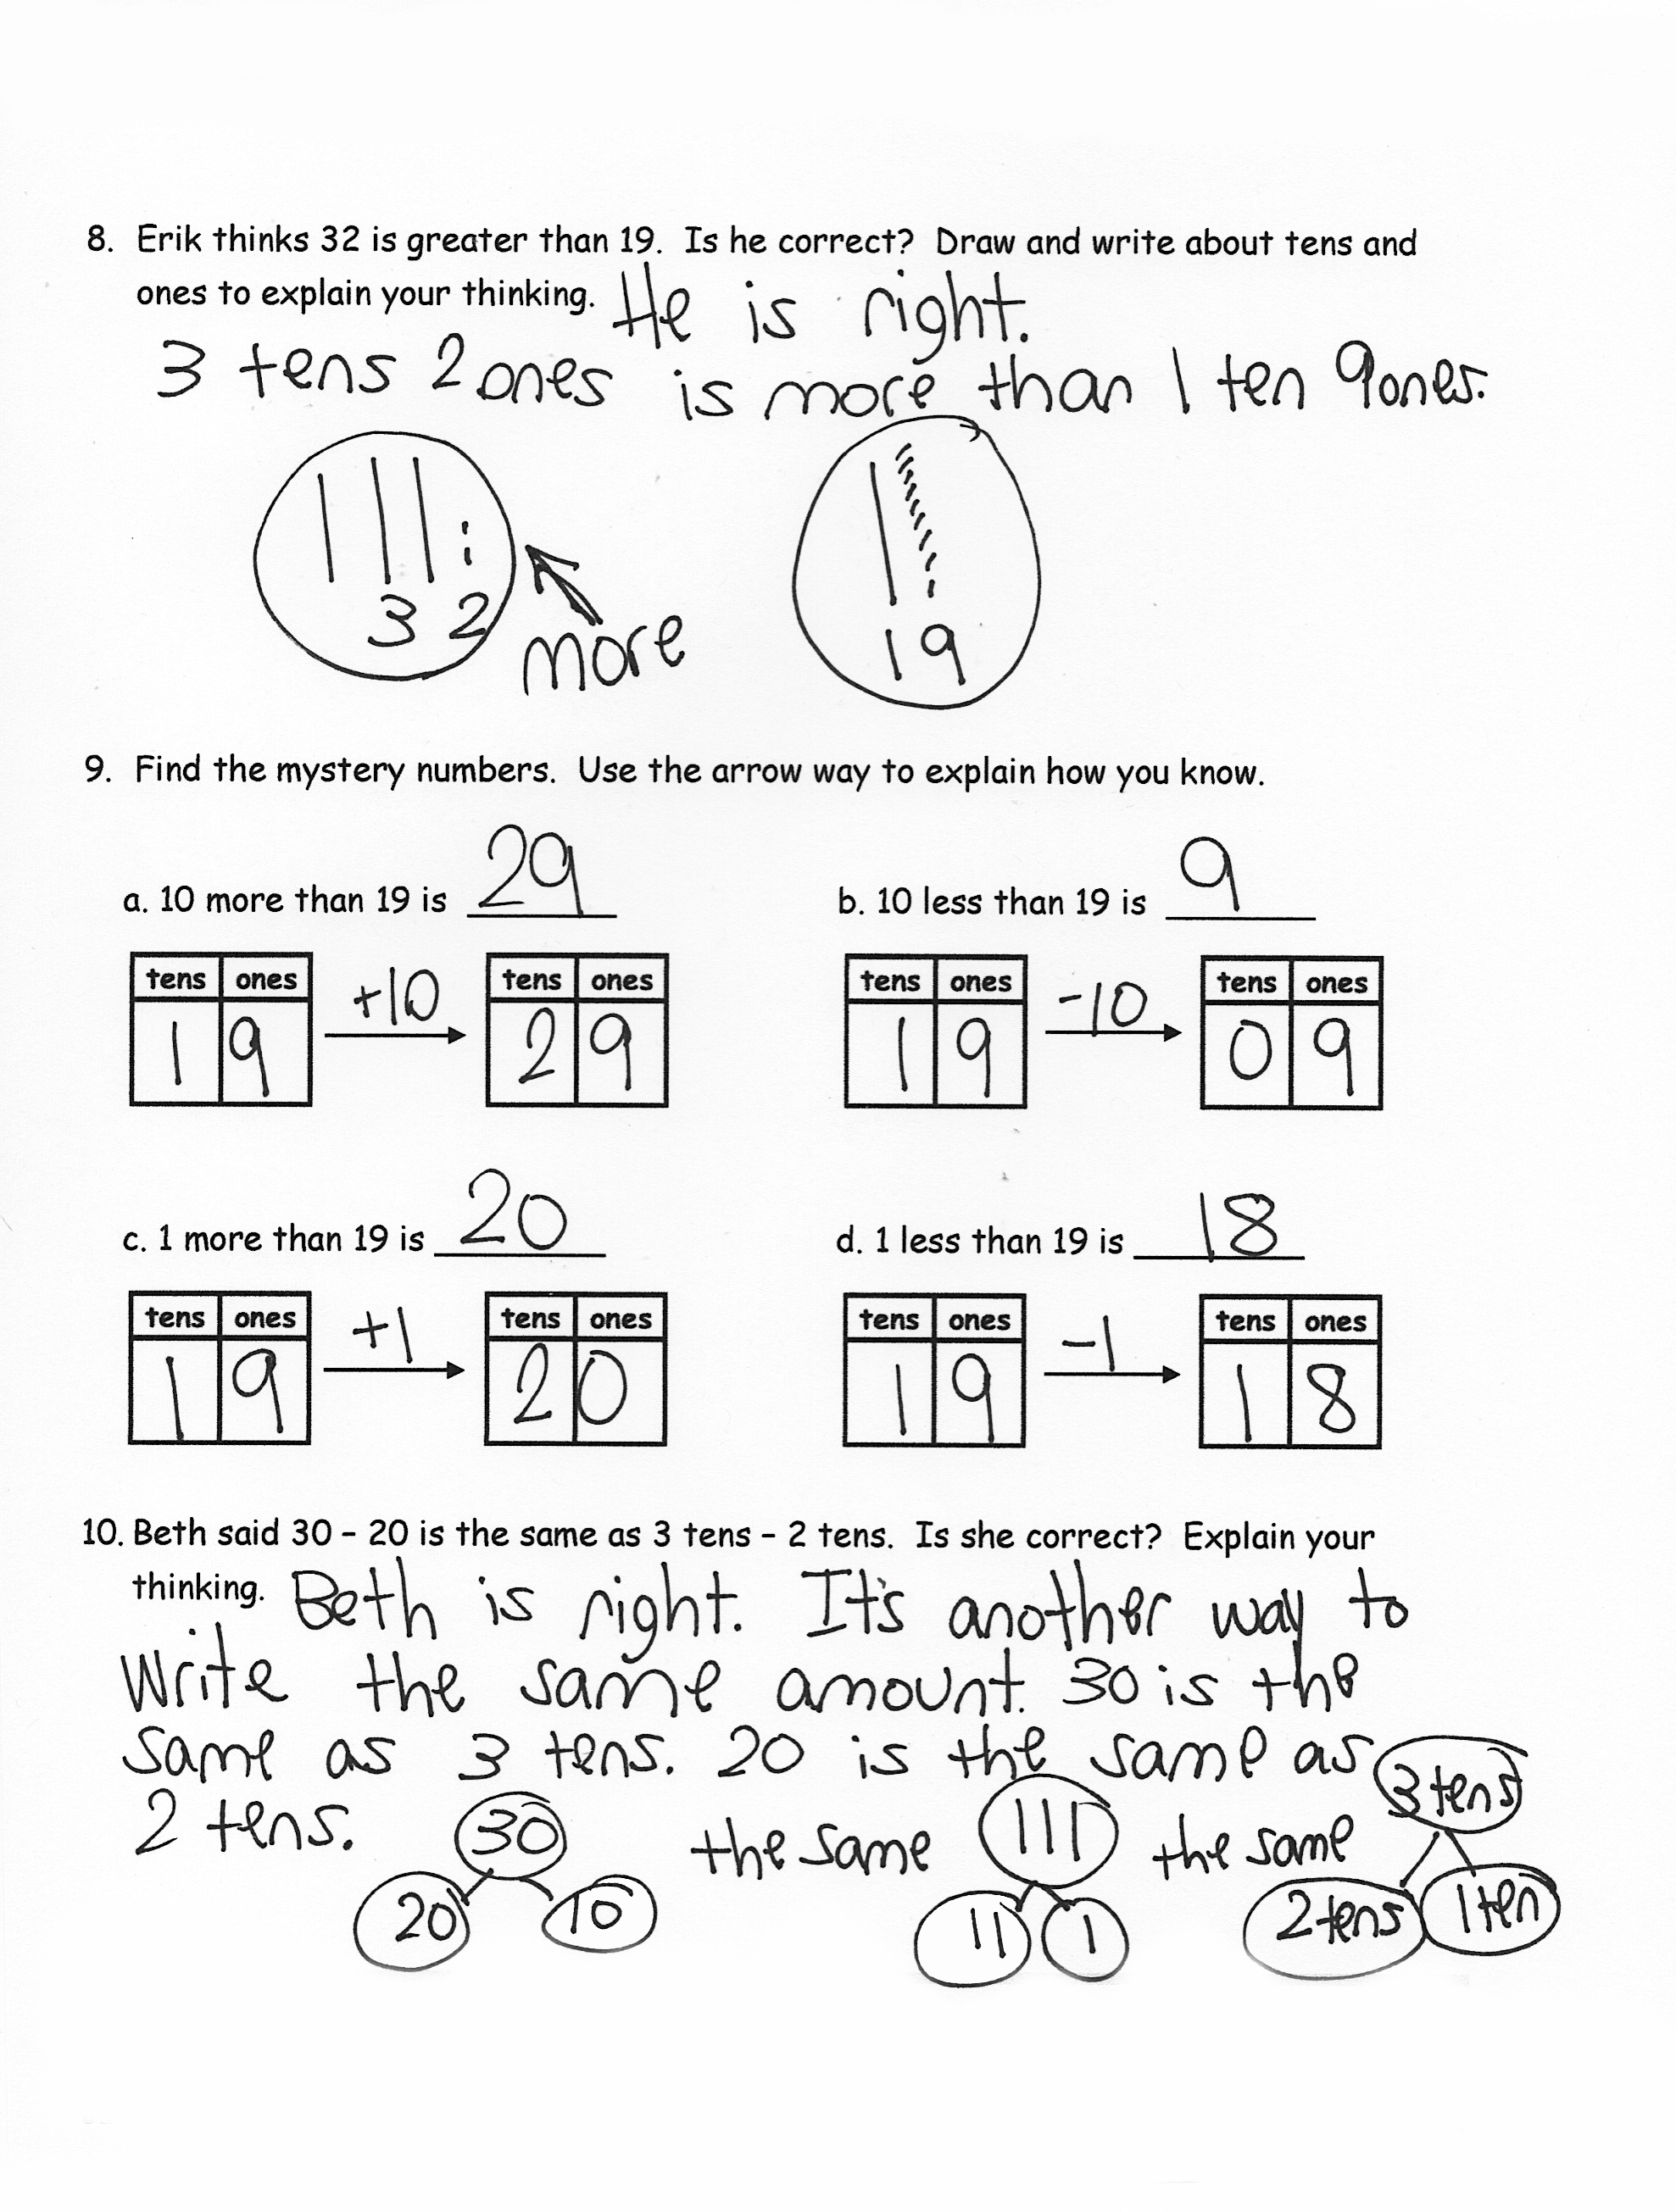 8. Erik thinks 32 is greater than 19. Is he correct? Draw and write about tens and
ones to explain your thinking. He is right.
3 tens 2 ones is more than 1 ten 9 ones.
3 2
more
19
9. Find the mystery numbers. Use the arrow way to explain how you know.
a. 10 more than 19 is 29
b. 10 less than 19 is 9
tens ones +10 tens ones
1 9 2 9
tens ones -10 tens ones
1 9 0 9
c. 1 more than 19 is 20
d. 1 less than 19 is 18
tens ones +1 tens ones
1 9 2 0
tens ones -1 tens ones
1 9 1 8
10. Beth said 30 – 20 is the same as 3 tens – 2 tens. Is she correct? Explain your
thinking. Beth is right. It's another way to
write the same amount. 30 is the
same as 3 tens. 20 is the same as
2 tens.
30 the same 111 the same 3 tens
20 10 11 1 2 tens 1 ten